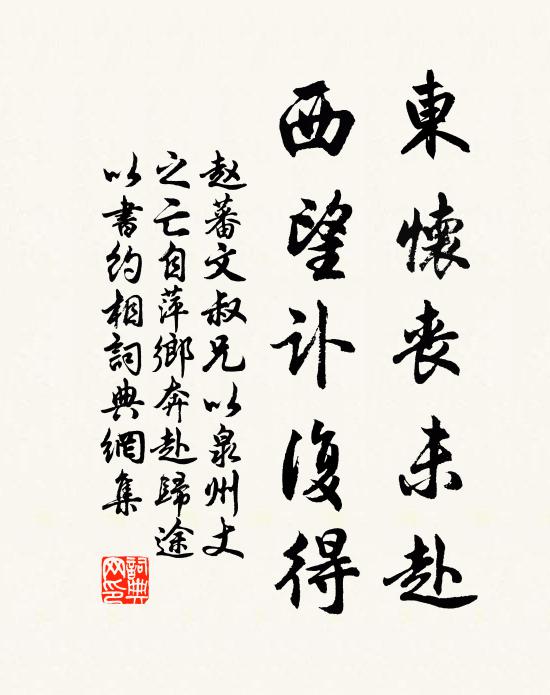 東懷喪未赴
西望訃復得
赵蕃文叔兄以泉州丈
之亡自萍鄉奔赴歸途
以書約相詞典網集
詞典
网印